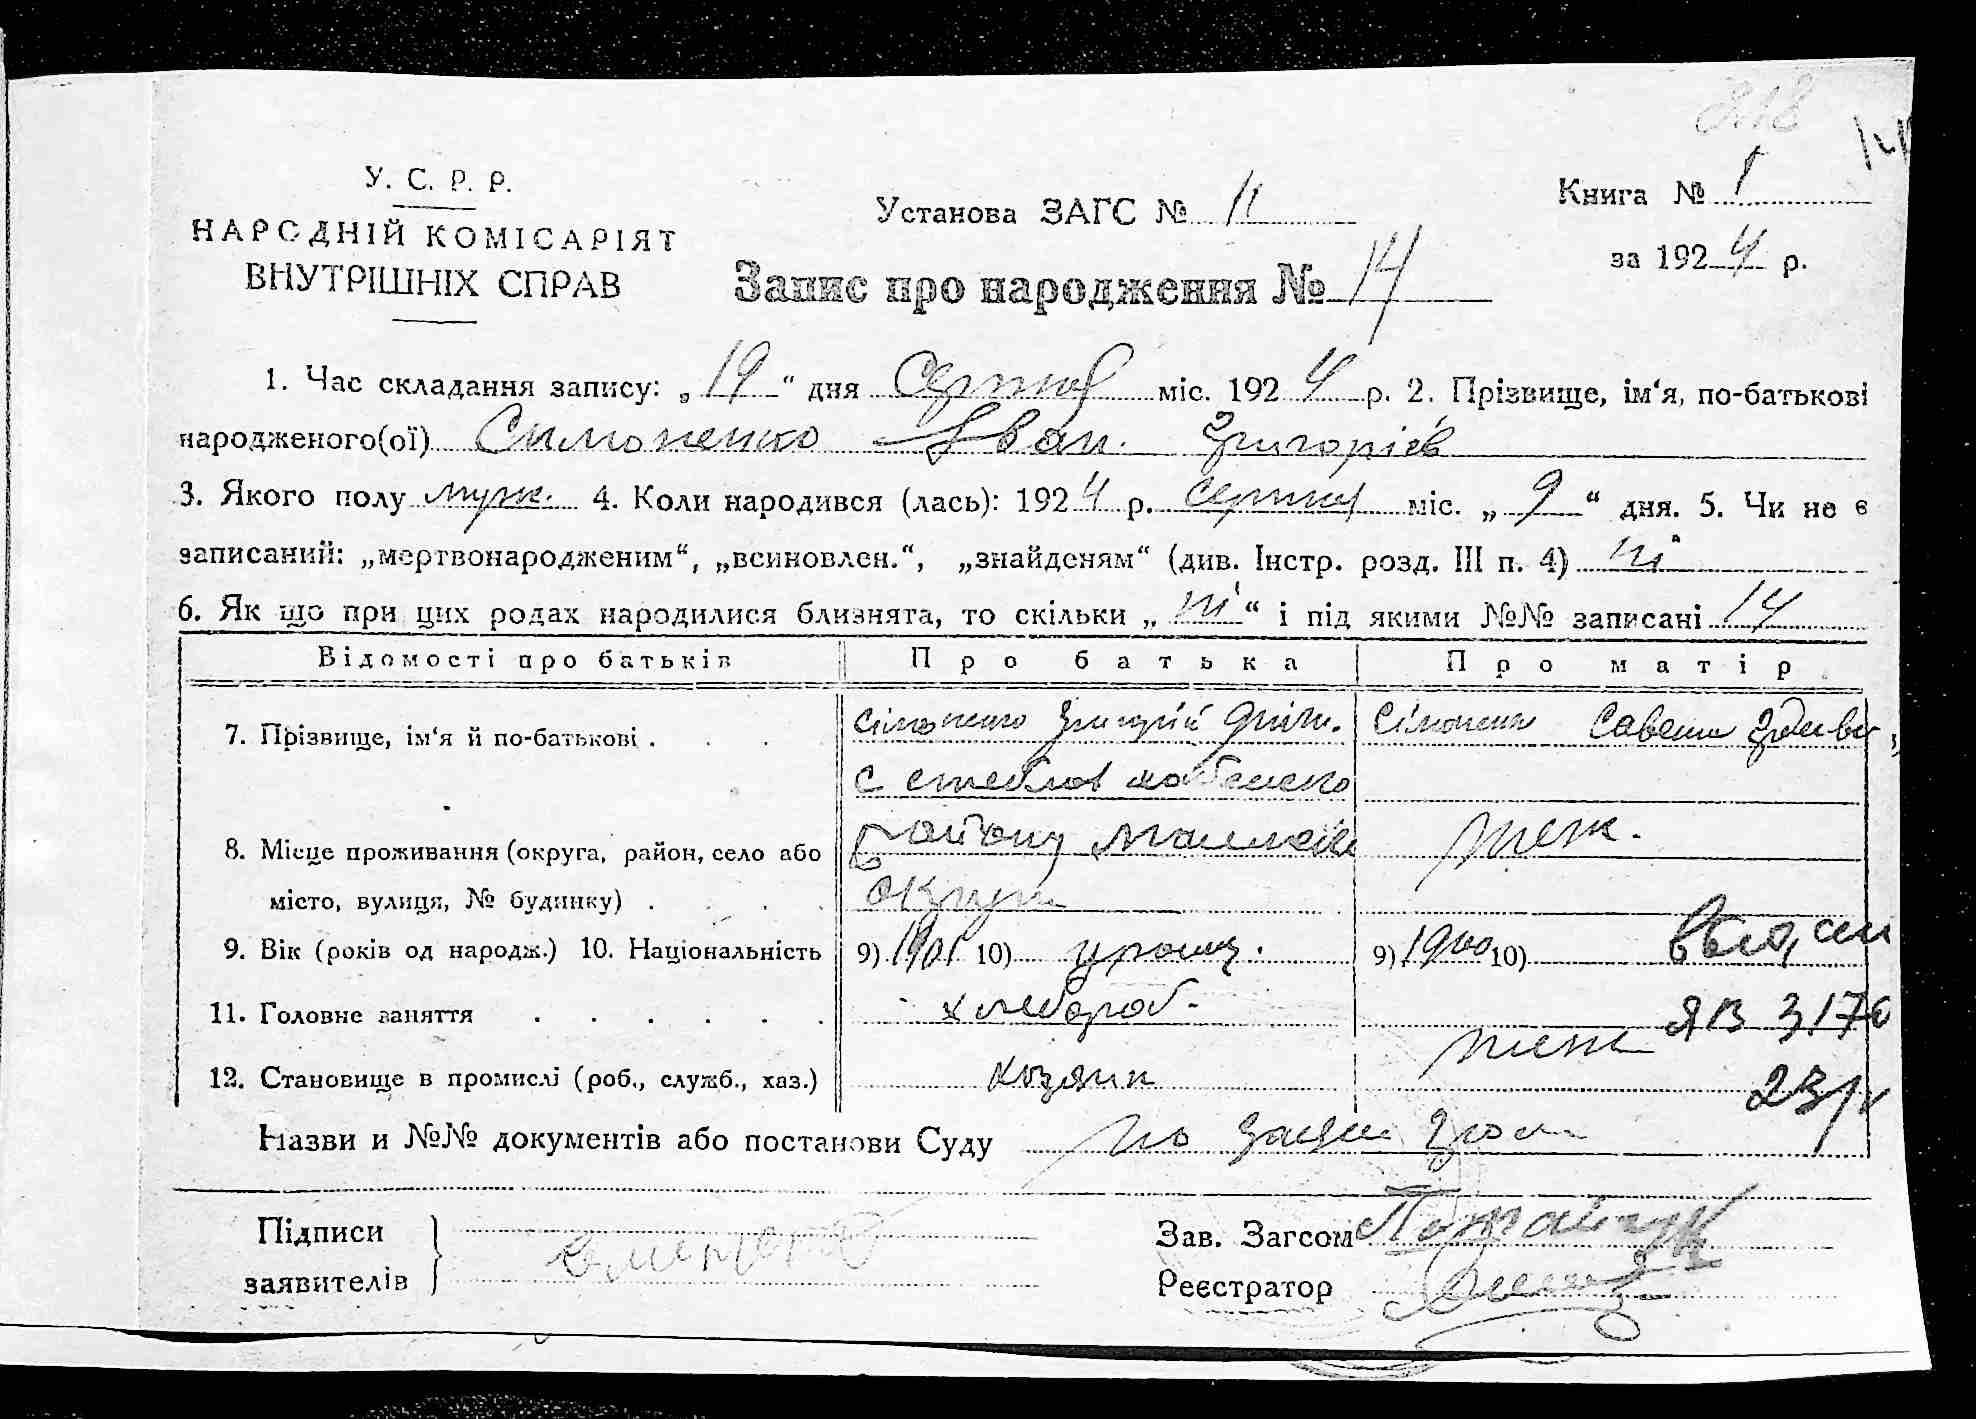 218
У. С. Р. Р.
НАРОДНІЙ КОМІСАРІЯТ
ВНУТРІШНІХ СПРАВ
Установа ЗАГС № 11
Книга № 1
за 1924 р.
Запис про народження № 14
1. Час складання запису: „19“ дня Серпня міс. 1924 р. 2. Прізвище, ім‘я, по-батькові
народженого(ої) Симоненко Іван Григоріев
3. Якого полу муж. 4. Коли народився (лась): 1924 р. серпня міс. „9“ дня. 5. Чи не є
записаний: „мертвонародженим“, „всиновлен.“, „знайденям“ (див. Інстр. розд. III п. 4) ні
6. Як що при цих родах народилися близнята, то скільки „ні“ і під якими №№ записані 14
Відомості про батьків Про батька Про матір
7. Прізвище, ім‘я й по-батькові . . . Сімоненко Григорій Сімоненко
с стеблов
8. Місце проживання (округа, район, село або району теж.
місто, вулиця, № будинку) . . . . округи
9. Вік (років од народж.) 10. Національність 9) 1901 10) украин. 9) 1900 10)
11. Головне заняття . . . . . . хлебороб ЯВ 3176
теж
12. Становище в промислі (роб., служб., хаз.) хозяин 23/
Назви и №№ документів або постанови Суду по
Підписи
заявителів
Зав. Загсом
Реєстратор